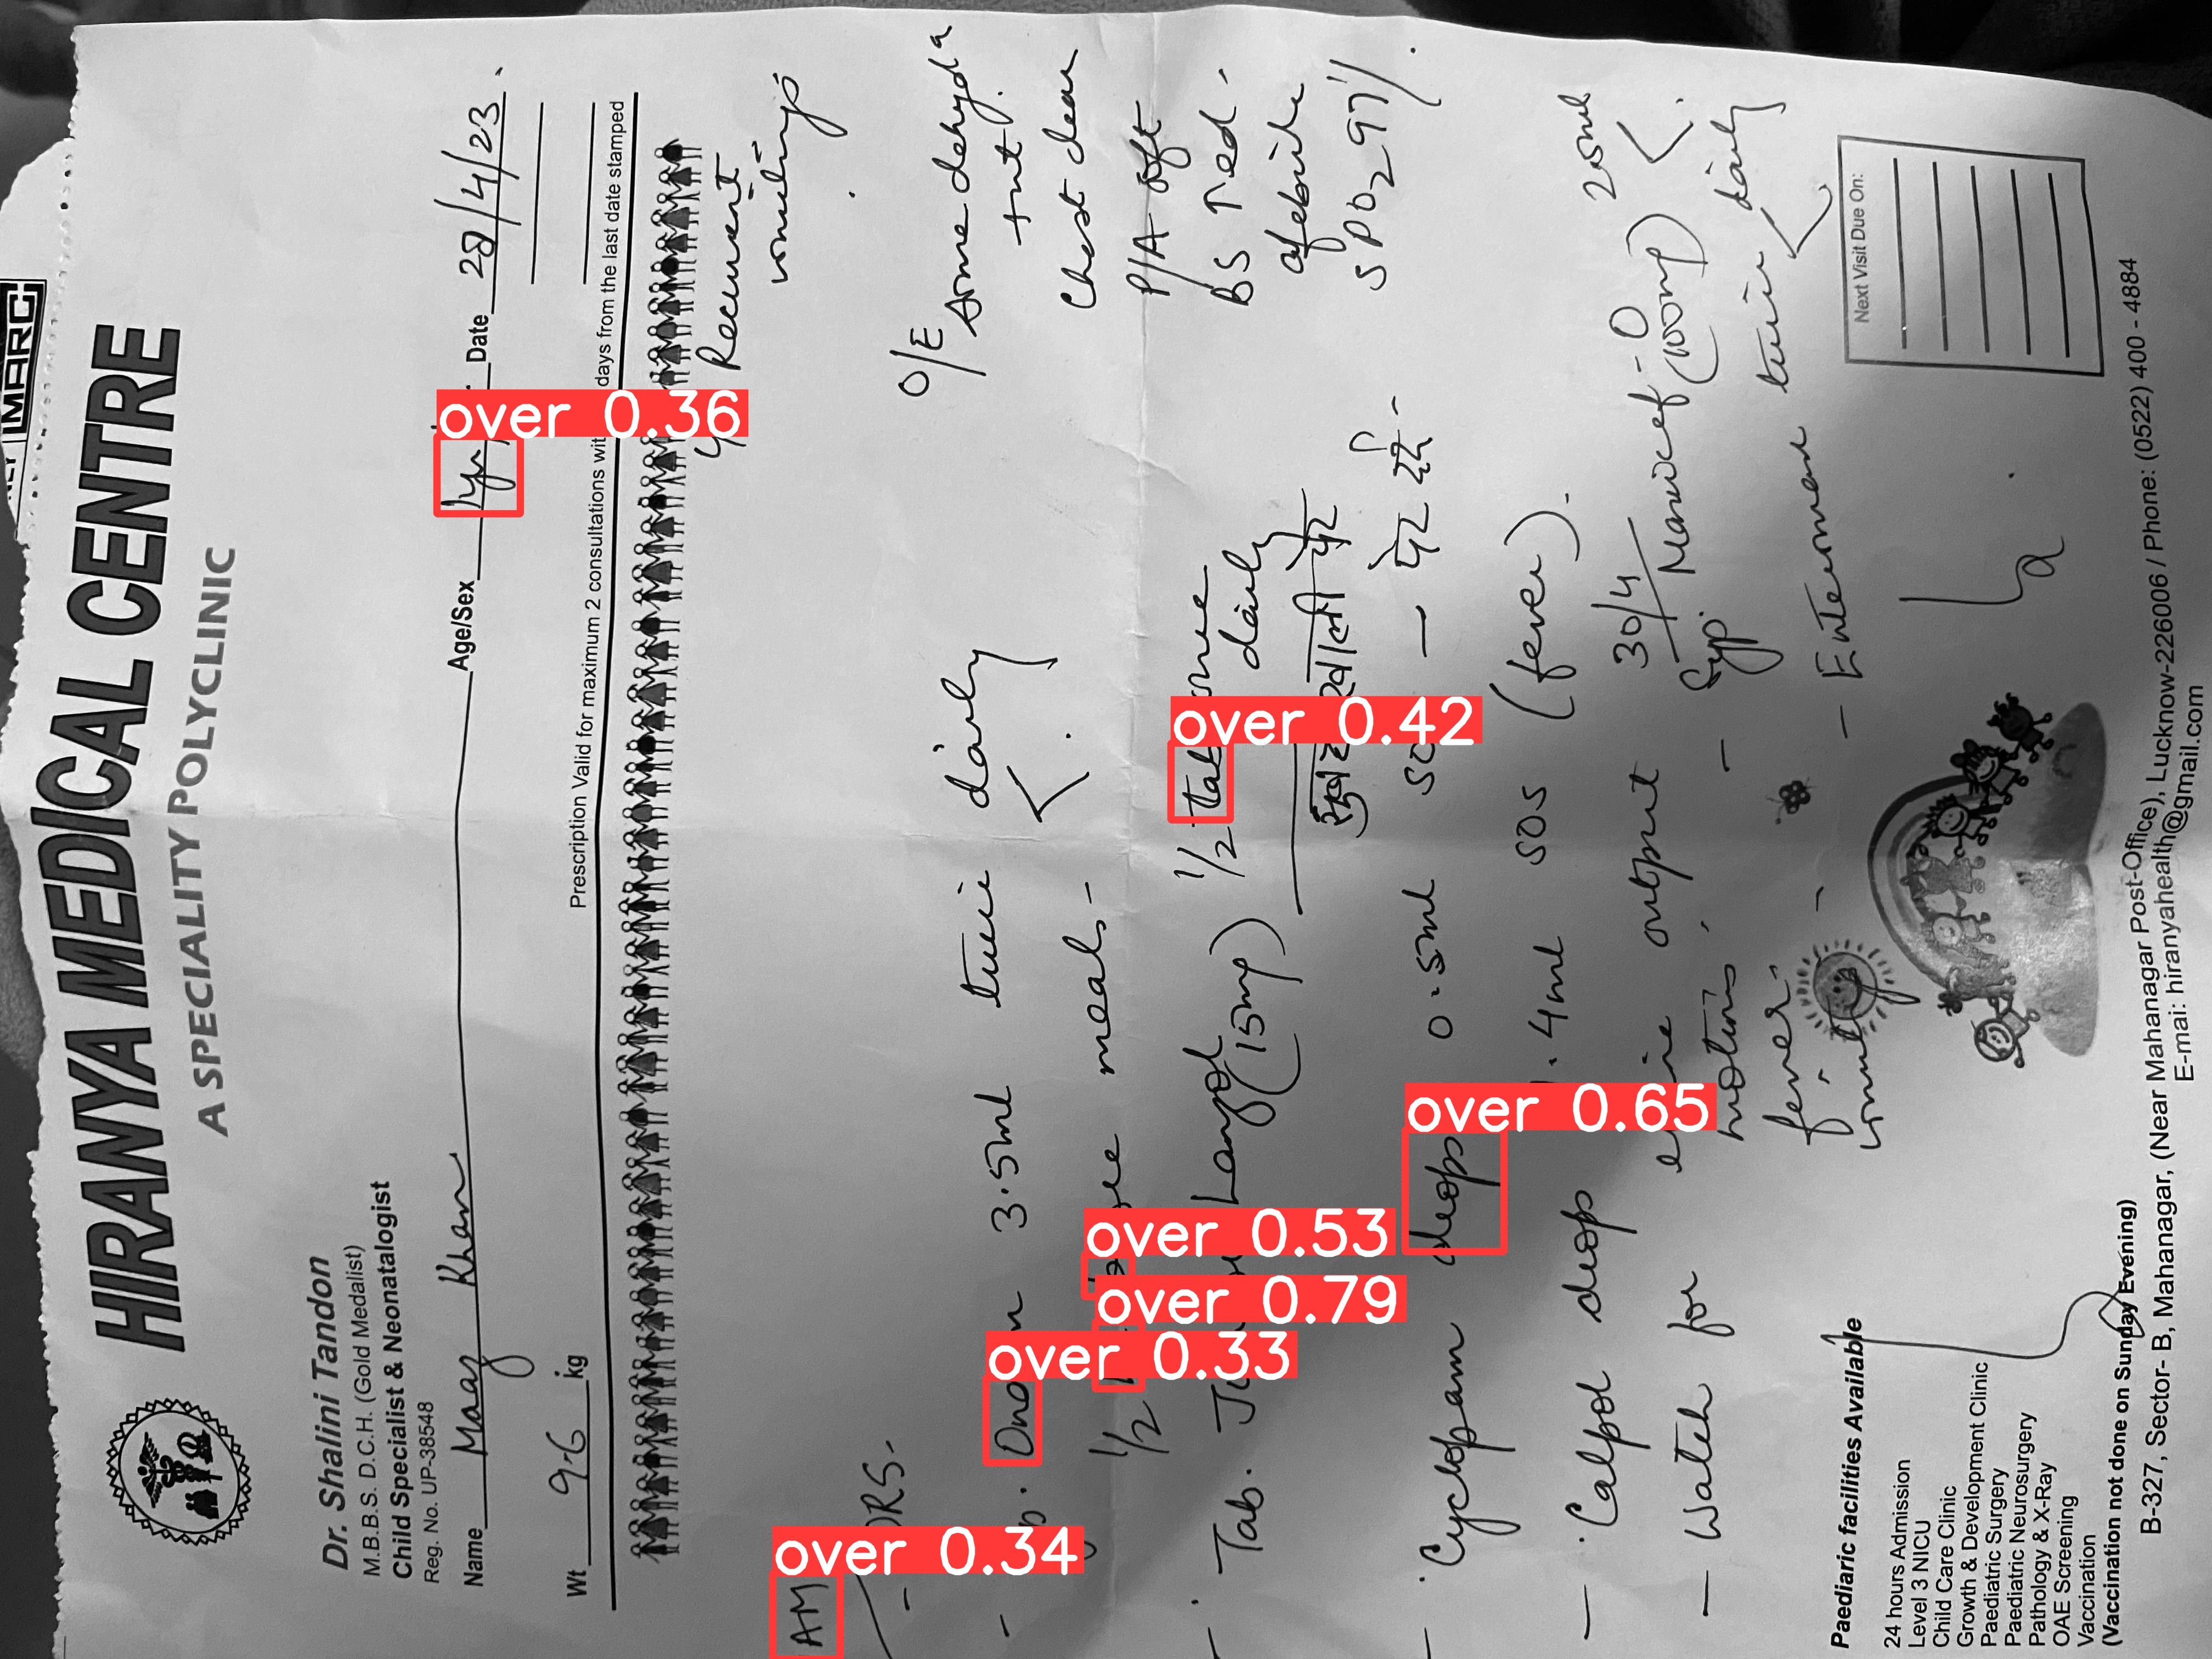 MARC
HIRANYA MEDICAL CENTRE
A SPECIALITY POLYCLINIC
Dr. Shalini Tandon
M.B.B.S. D.C.H. (Gold Medalist)
Child Specialist & Neonatalogist
Reg. No. UP-38548
Name Maaz Khan Age/Sex 1yr Date 28/4/23
Wt 9.6 kg
Prescription Valid for maximum 2 consultations wit days from the last date stamped
over 0.36
Recurrent
vomiting
O/E
some dehydn
chest clear
P/A soft
BS
afebrile
SPO2 97%.
AM
over 0.34
- ORS.
over 0.33
3.5ml twice daily
1/2
over 0.79
over 0.53
meals -
- Tab. Lanzol 1/2 tab one daily
over 0.42
(15mg)
- Cyclopam drops 0.5ml SOS - पेट दर्द -
over 0.65
- Calpol drop 1.4ml SOS (fever).
- Watch for output
motions,
fever,
30/4
Syp. -O
(100mg)
twice daily
Next Visit Due On:
Paediaric facilities Available
24 hours Admission
Level 3 NICU
Child Care Clinic
Growth & Development Clinic
Paediatric Surgery
Paediatric Neurosurgery
Pathology & X-Ray
OAE Screening
Vaccination
(Vaccination not done on Sunday Evening)
B-327, Sector- B, Mahanagar, (Near Mahanagar Post-Office), Lucknow-226006 / Phone: (0522) 400 - 4884
E-mai: hiranyahealth@gmail.com